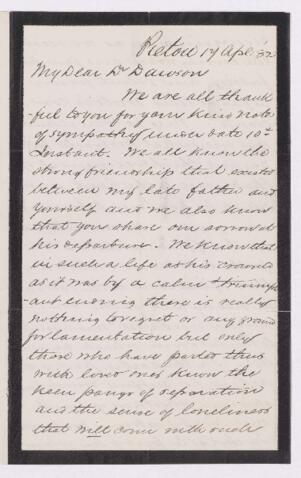 Pictou 17 Apl '82
My Dear Dr Dawson
We are all thank
-ful to you for your kind note
of sympathy under date 10th
Instant. We all know the
strong friendship that existed
between my late father and
yourself and we also know
that you share our sorrow at
his departure. We know that
in such a life as his crowned
as it was by a calm & triumph
-ant evening there is really
nothing to regret or any ground
for lamentation but only
those who have parted thus
with loved ones know the
keen pangs of separation
and the sense of loneliness
that will come with such